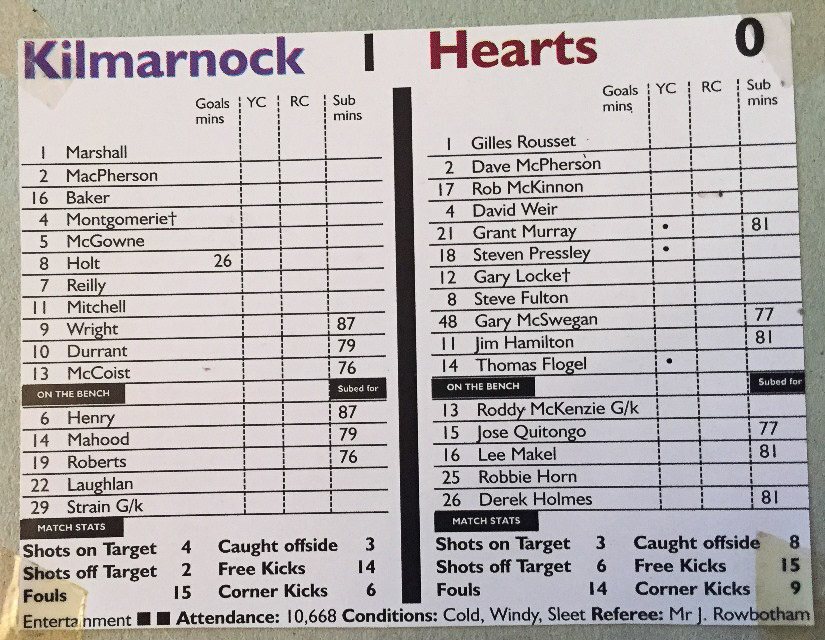 Kilmarnock 1
Goals mins YC RC Sub mins
1 Marshall
2 MacPherson
16 Baker
4 Montgomerie†
5 McGowne
8 Holt 26
7 Reilly
11 Mitchell
9 Wright 87
10 Durrant 79
13 McCoist 76
ON THE BENCH Subed for
6 Henry 87
14 Mahood 79
19 Roberts 76
22 Laughlan
29 Strain G/k
MATCH STATS
Shots on Target 4 Caught offside 3
Shots off Target 2 Free Kicks 14
Fouls 15 Corner Kicks 6
Hearts 0
Goals mins YC RC Sub mins
1 Gilles Rousset
2 Dave McPherson
17 Rob McKinnon
4 David Weir
21 Grant Murray • 81
18 Steven Pressley •
12 Gary Locke†
8 Steve Fulton
48 Gary McSwegan 77
11 Jim Hamilton 81
14 Thomas Flogel •
ON THE BENCH Subed for
13 Roddy McKenzie G/k
15 Jose Quitongo 77
16 Lee Makel 81
25 Robbie Horn
26 Derek Holmes 81
MATCH STATS
Shots on Target 3 Caught offside 8
Shots off Target 6 Free Kicks 15
Fouls 14 Corner Kicks 9
Entertainment ■ ■ Attendance: 10,668 Conditions: Cold, Windy, Sleet Referee: Mr J. Rowbotham